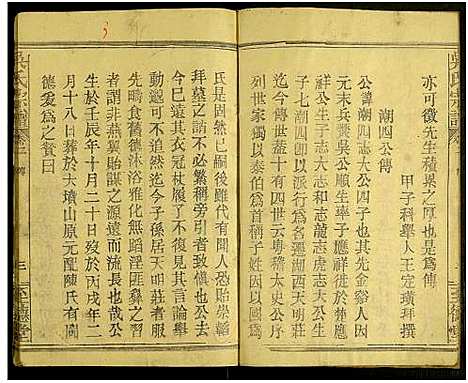 吳氏宗譜
亦可徵先生積累之厚也是爲傳
甲子科舉人王定璜拜撰
潮四公傳
公諱潮四志大公四子也其先金谿人因
元末兵燹吳公順生率子應礽徙於楚應
祥公生子志和志龍志虎志大於明天
迄今傳世蓋十有四世云粵稽太史公序
列世家獨以泰伯爲首稱子
氏是固然已嗣後雖代有聞人恐貽學
拜墓之譏故不必繁稱旁引者致愼也公去
今已遠其衣冠杖履不可復考其言論舉
動蓋不可追然迄今子孫居天明莊者服
先疇食舊德沐浴雅化無蹈澆習故吾謂
者謂非燕翼貽謀之源遠而流長也哉公
生於壬辰年十月二十日歿於丙戌年二
月十八日葬於大墳山原元配陳氏有閫
德爰爲之贊曰